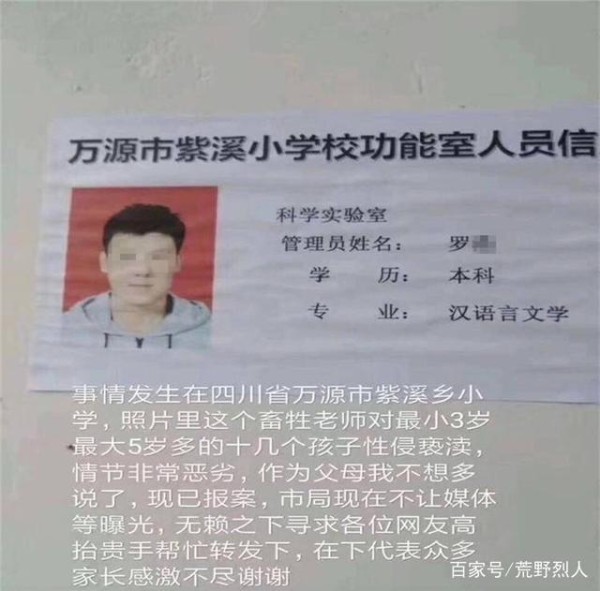 万源市紫溪小学校功能室人员信
科学实验室
管理员姓名： 罗
学 历： 本科
专 业： 汉语言文学
事情发生在四川省万源市紫溪乡小
学，照片里这个畜牲老师对最小3岁
最大5岁多的十几个孩子性侵亵渎，
情节非常恶劣，作为父母我不想多
说了，现已报案，市局现在不让媒体
等曝光，无赖之下寻求各位网友高
抬贵手帮忙转发下，在下代表众多
家长感激不尽谢谢
百家号/荒野烈人